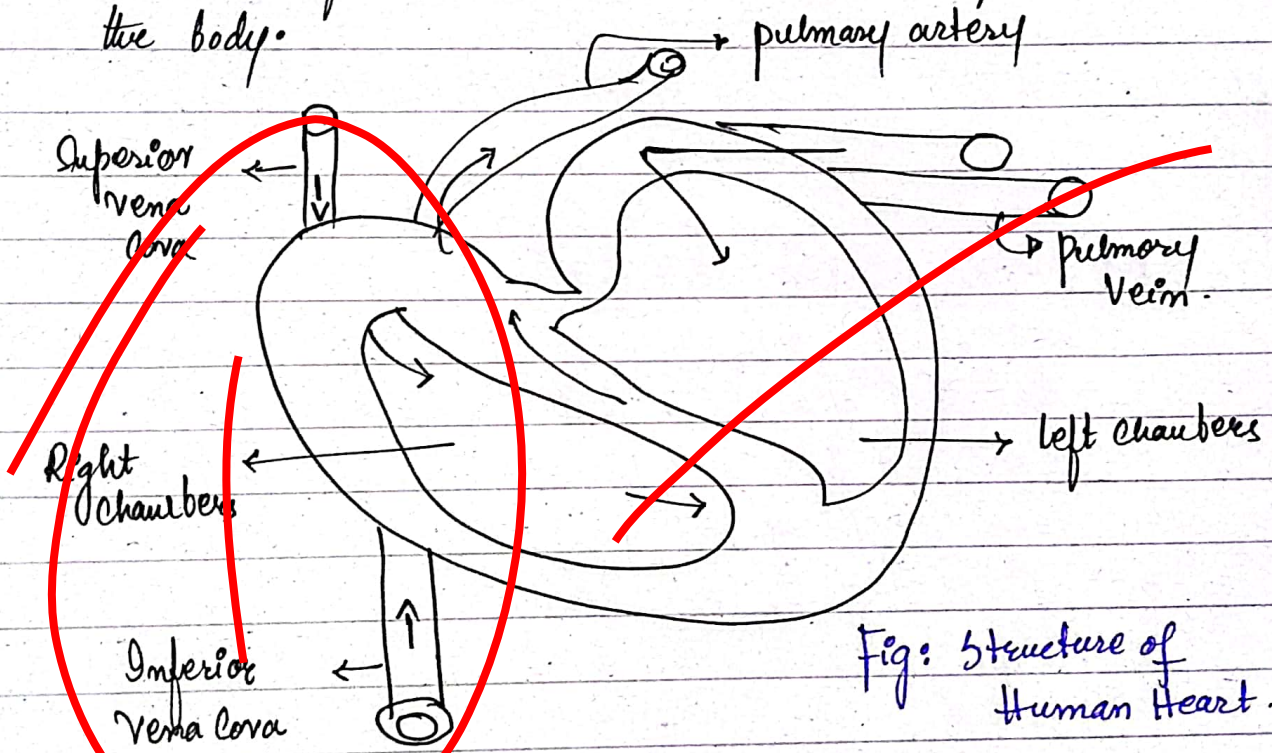 the body.
pulmary artery
Superior
vena
Cova
pulmory
Vein.
left chambers
Right
chambers
Inferior
Vena Cova
Fig: Structure of
Human Heart.